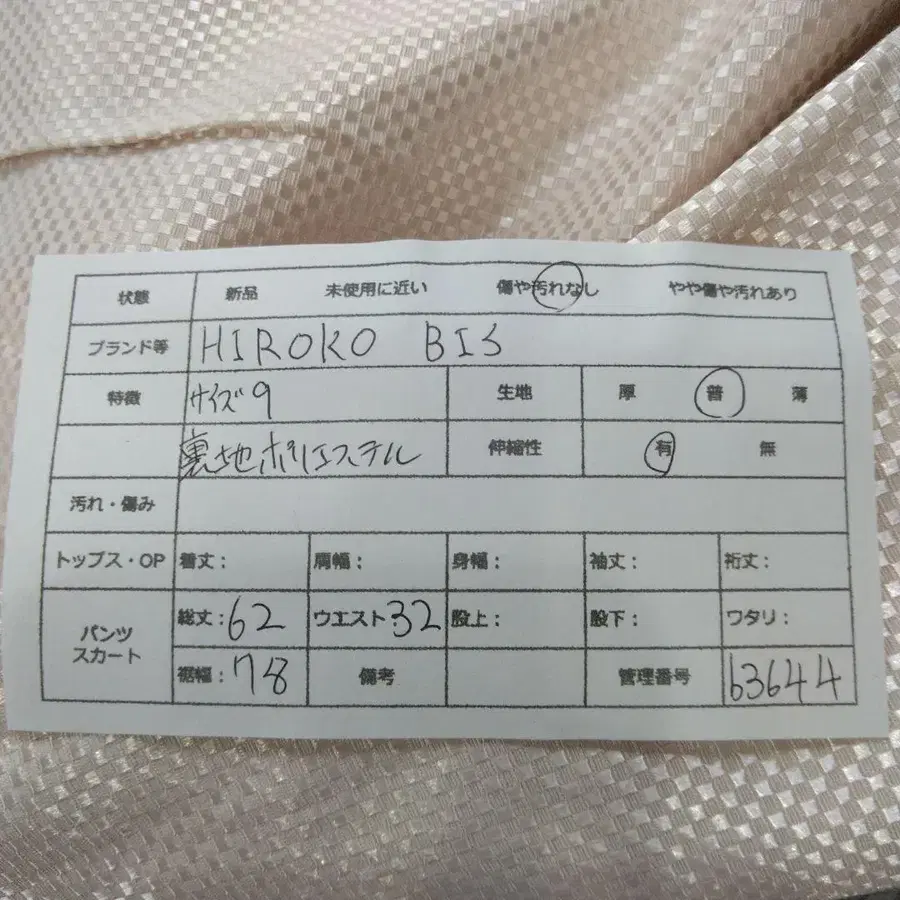 状態 新品 未使用に近い 傷や汚れなし やや傷や汚れあり
ブランド等 HIROKO BIS
特徴 サイズ9 生地 厚 普 薄
裏地ポリエステル 伸縮性 有 無
汚れ・傷み
トップス・OP 着丈： 肩幅： 身幅： 袖丈： 裄丈：
パンツ スカート 総丈：62 ウエスト：32 股上： 股下： ワタリ：
裾幅：78 備考 管理番号 63644